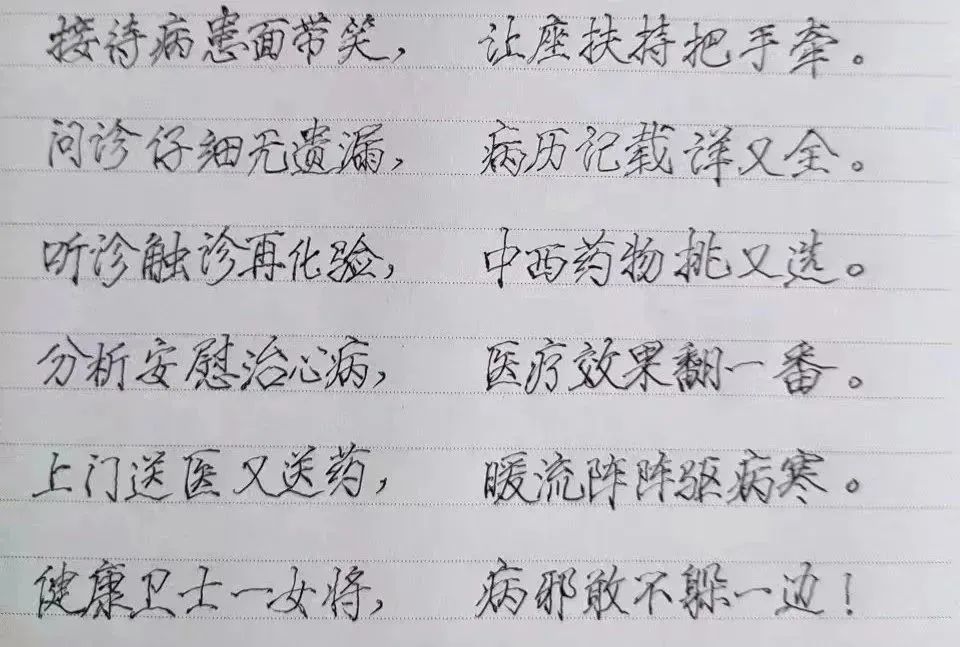 接待病患面带笑， 让座扶持把手牵。
问诊仔细无遗漏， 病历记载详又全。
听诊触诊再化验， 中西药物挑又选。
分析安慰治心病， 医疗效果翻一番。
上门送医又送药， 暖流阵阵驱病寒。
健康卫士一女将， 病邪敢不躲一边！